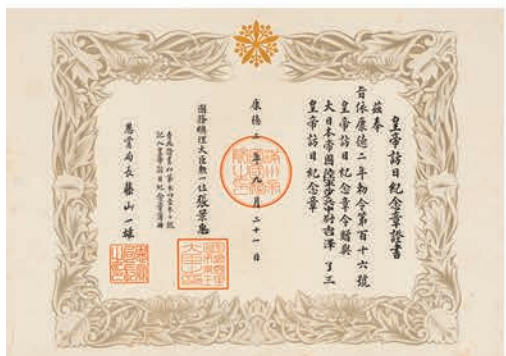 皇帝訪日紀念章證書
茲奉
旨依康德二年勅令第百十六號
皇帝訪日紀念章令贈與
大日本帝國陸軍步兵中尉吉澤了三
皇帝訪日紀念章
康德二年九月二十一日
國務總理大臣勳一位張景惠
記入皇帝訪日紀念章簿冊
恩賞局長藤山一雄